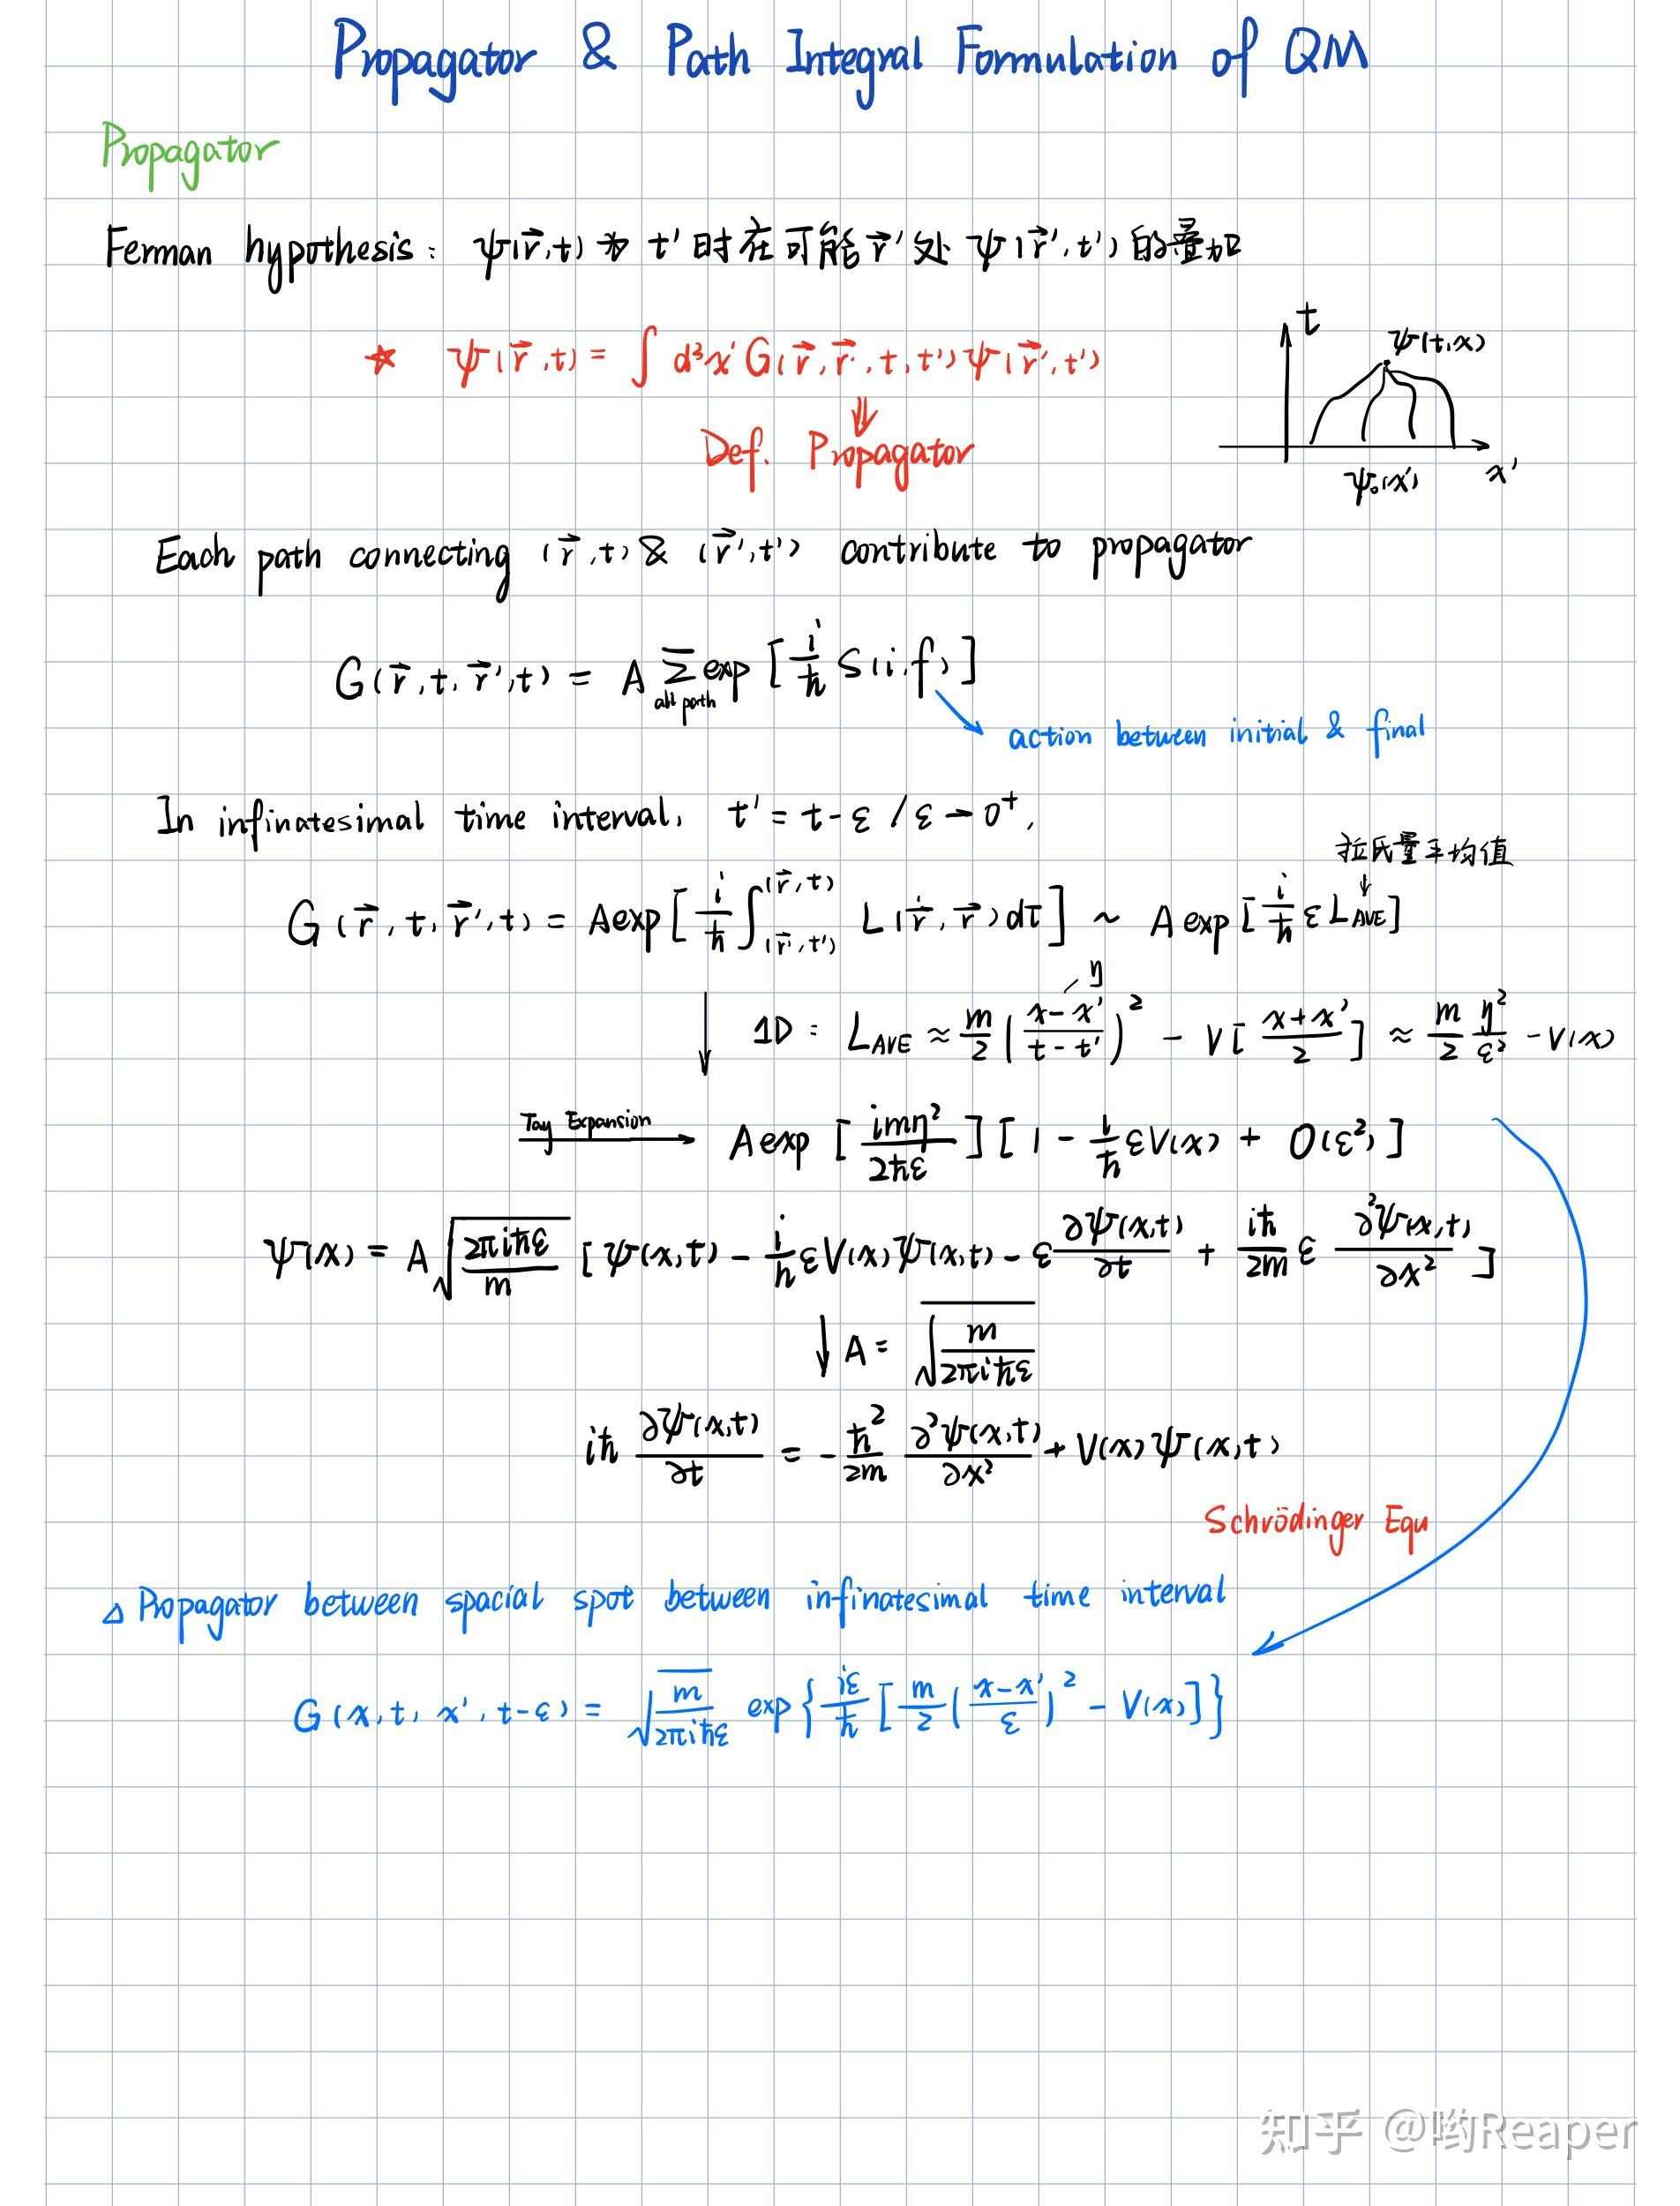 Propagator & Path Integral Formulation of QM
Propagator
Ferman hypothesis: ψ(r⃗,t) 为 t' 时在可能 r⃗' 处 ψ(r⃗',t') 的叠加
☆ ψ(r⃗,t) = ∫ d³x' G(r⃗, r⃗', t, t') ψ(r⃗',t')
⇓
Def. Propagator
t
ψ(t,x)
ψ₀(x')
x'
Each path connecting (r⃗,t) & (r⃗',t') contribute to propagator
G(r⃗,t,r⃗',t) = A Σ_{all path} exp[i/ħ S(i,f)]
action between initial & final
In infinatesimal time interval, t' = t-ε / ε→0⁺,
拉氏量平均值
G(r⃗,t,r⃗',t) = A exp[i/ħ ∫_{(r⃗',t')}^{(r⃗,t)} L(ṙ⃗, r⃗) dt] ~ A exp[i/ħ ε L_AVE]
η
1D: L_AVE ≈ m/2 ((x-x')/(t-t'))² - V[(x+x')/2] ≈ m/2 η²/ε² - V(x)
Tay Expansion → A exp[imη²/2ħε][1 - i/ħ εV(x) + O(ε²)]
ψ(x) = A √(2πiħε/m) [ψ(x,t) - i/ħ εV(x)ψ(x,t) - ε ∂ψ(x,t)/∂t + iħ/2m ε ∂²ψ(x,t)/∂x²]
↓ A = √(m/2πiħε)
iħ ∂ψ(x,t)/∂t = -ħ²/2m ∂²ψ(x,t)/∂x² + V(x)ψ(x,t)
Schrödinger Equ
△ Propagator between spacial spot between infinatesimal time interval
G(x,t,x',t-ε) = √(m/2πiħε) exp{iε/ħ [m/2 ((x-x')/ε)² - V(x)]}
知乎 @哟Reaper